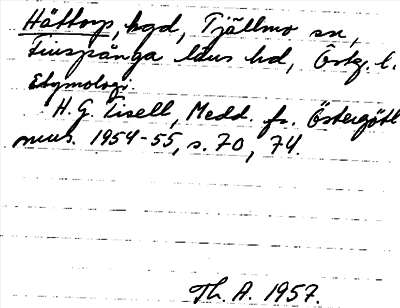 Hättorp, hgd, Tjällmo sn,
Finspånga läns hd, Östg. l.
Etymologi
H. G. Tisell, Medd. fr. Östergötl
mus. 1954-55, s. 70, 74.
Th. A. 1957.